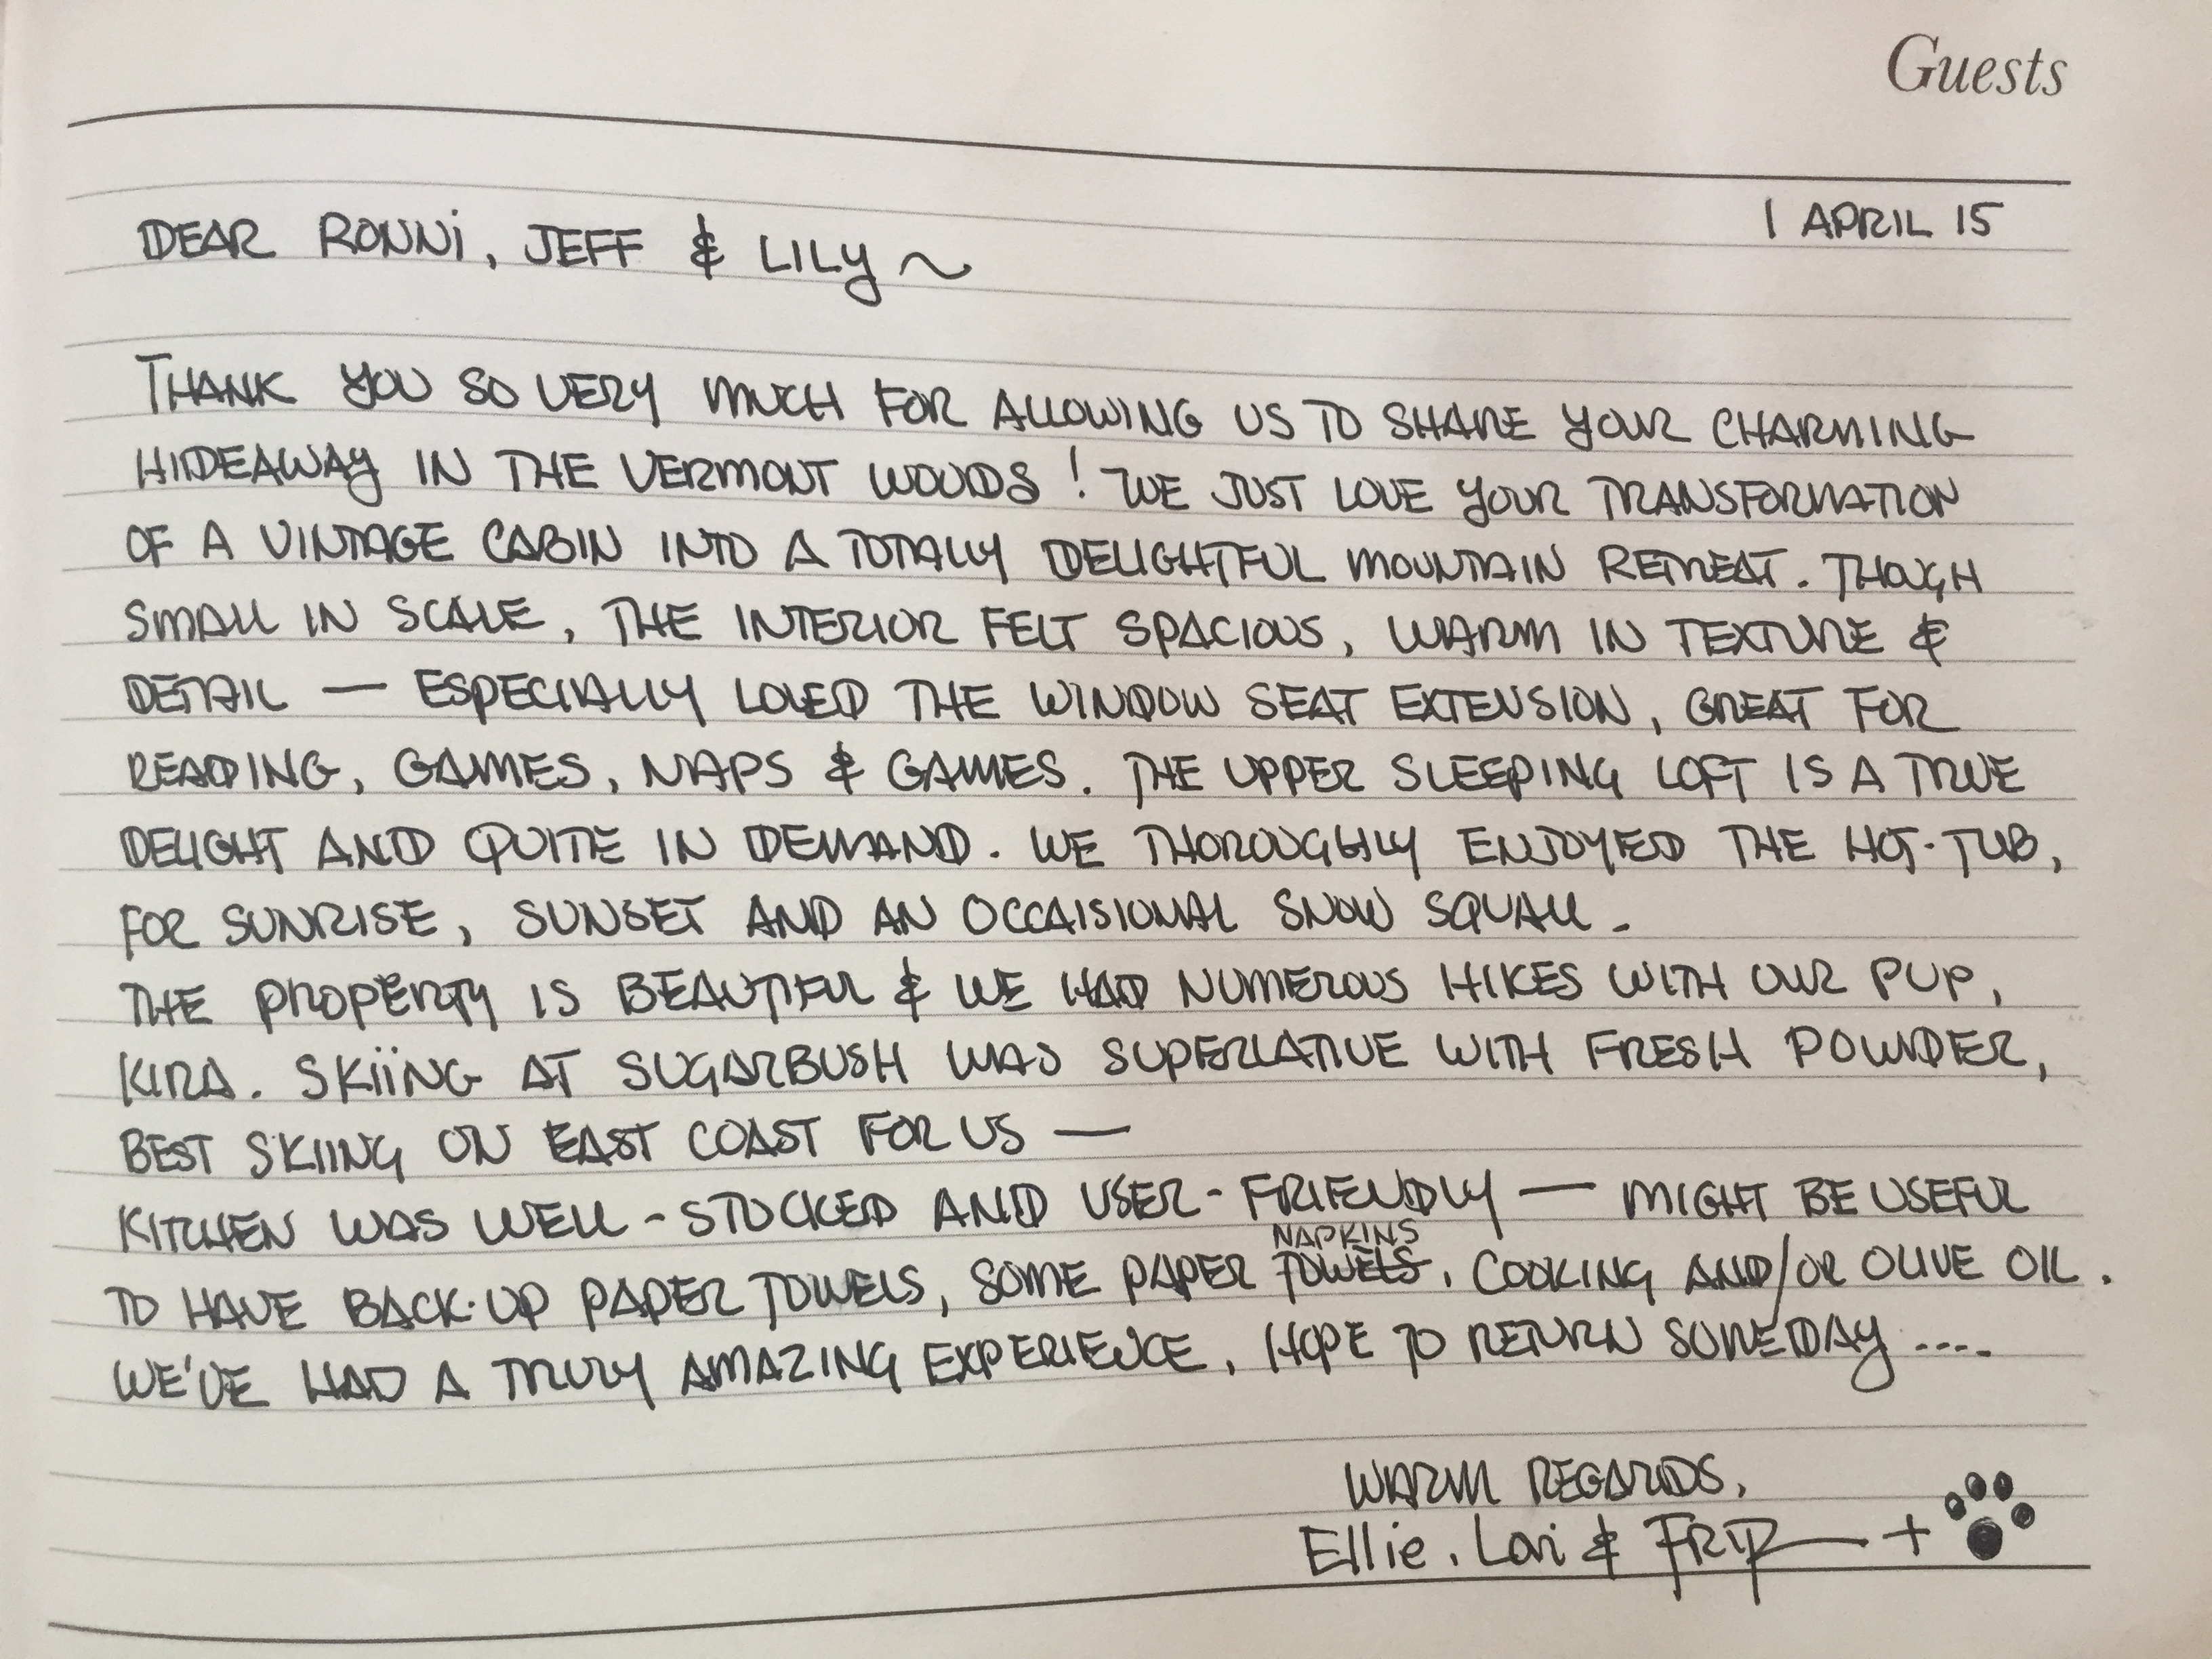 Guests
1 APRIL 15
DEAR RONNi, JEFF & LILY ~
THANK YOU SO VERY MUCH FOR ALLOWING US TO SHARE YOUR CHARMING
HIDEAWAY IN THE VERMONT WOODS! WE JUST LOVE YOUR TRANSFORMATION
OF A VINTAGE CABIN INTO A TOTALLY DELIGHTFUL MOUNTAIN RETREAT. THOUGH
SMALL IN SCALE, THE INTERIOR FELT SPACIOUS, WARM IN TEXTURE &
DETAIL — ESPECIALLY LOVED THE WINDOW SEAT EXTENSION, GREAT FOR
READING, GAMES, NAPS & GAMES. THE UPPER SLEEPING LOFT IS A TRUE
DELIGHT AND QUITE IN DEMAND. WE THOROUGHLY ENJOYED THE HOT-TUB,
FOR SUNRISE, SUNSET AND AN OCCAISIONAL SNOW SQUALL.
THE PROPERTY IS BEAUTIFUL & WE HAD NUMEROUS HIKES WITH OUR PUP,
KIRA. SKIING AT SUGARBUSH WAS SUPERLATIVE WITH FRESH POWDER,
BEST SKIING ON EAST COAST FOR US —
KITCHEN WAS WELL-STOCKED AND USER-FRIENDLY — MIGHT BE USEFUL
NAPKINS
TO HAVE BACK-UP PAPER TOWELS, SOME PAPER TOWELS, COOKING AND/OR OLIVE OIL.
WE'VE HAD A TRULY AMAZING EXPERIENCE, HOPE TO RETURN SOMEDAY ....
WARM REGARDS,
Ellie, Lori & FRIP +